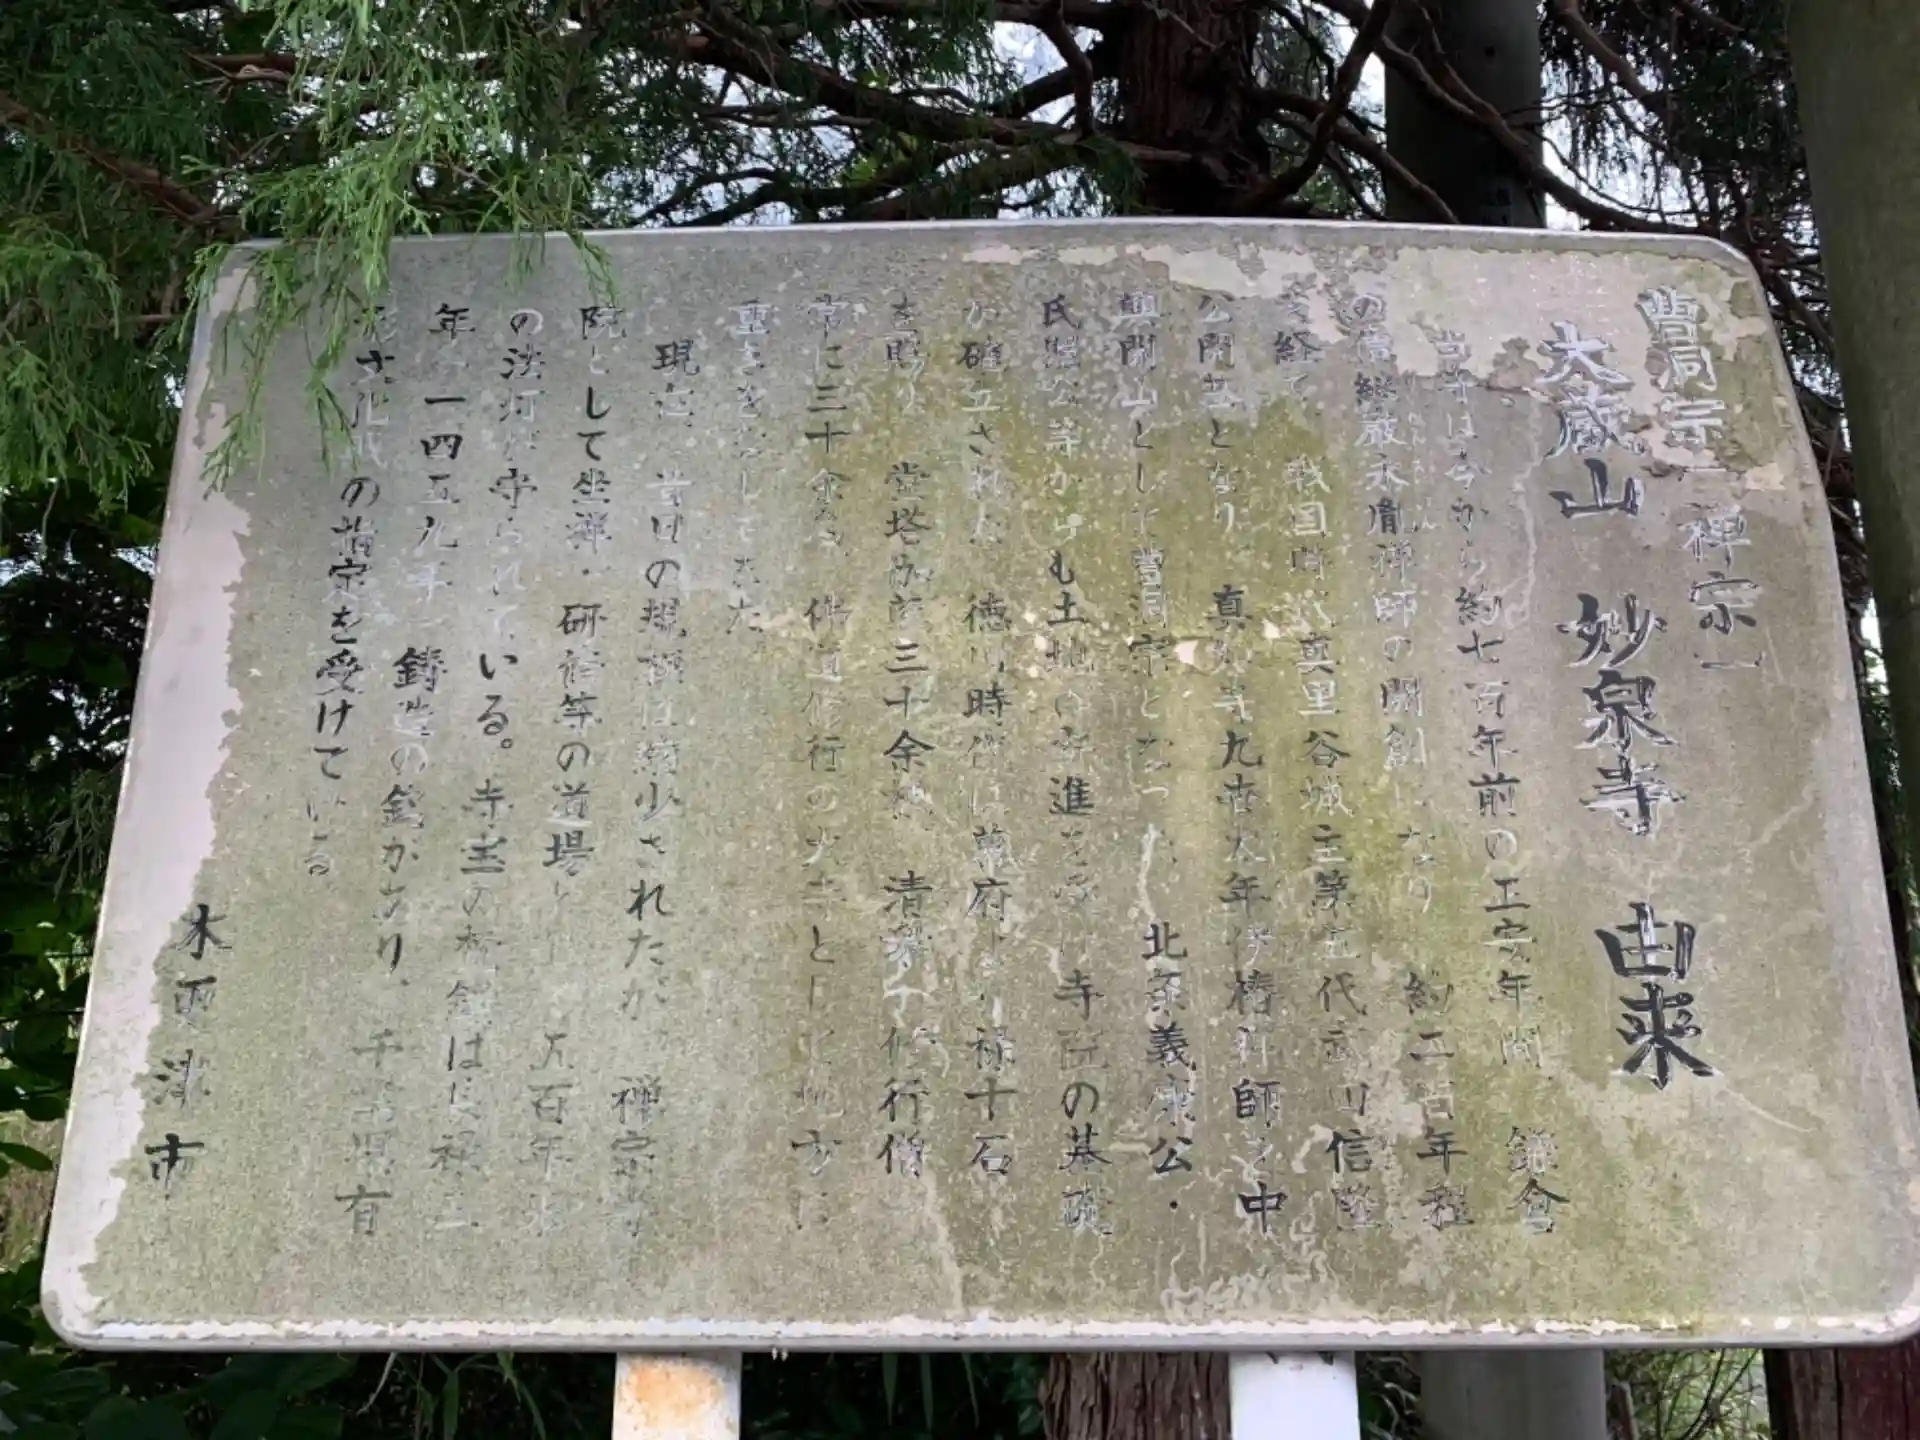 曹洞宗 禅宗
大蔵山 妙泉寺 由来
当寺は今から約七百年前の工安年間 鎌倉
の 厳 禅師の開創になり 約二百年程
を経て 戦国時代真里谷城主第五代武田信隆
公開基となり 真如寺九世大年 椿 師を中
興開山として曹洞宗となった 北条義康公・
氏 公等から 土地の寄進を 寺院の基礎
が確立された 徳川時代に幕府より禄十石
を賜り 堂塔伽藍三十余 清 修行僧
常に三十余名 仏道修行の大寺として地方に
重きをなしてきた
現在 昔日の規模は縮少されたが 禅宗寺
院として坐禅・研修等の道場 五百年来
の法灯が守られている。寺宝の梵鐘は長禄三
年 一四五九年 鋳造の銘があり、千葉県有
形文化財の指定を受けている
木更津市